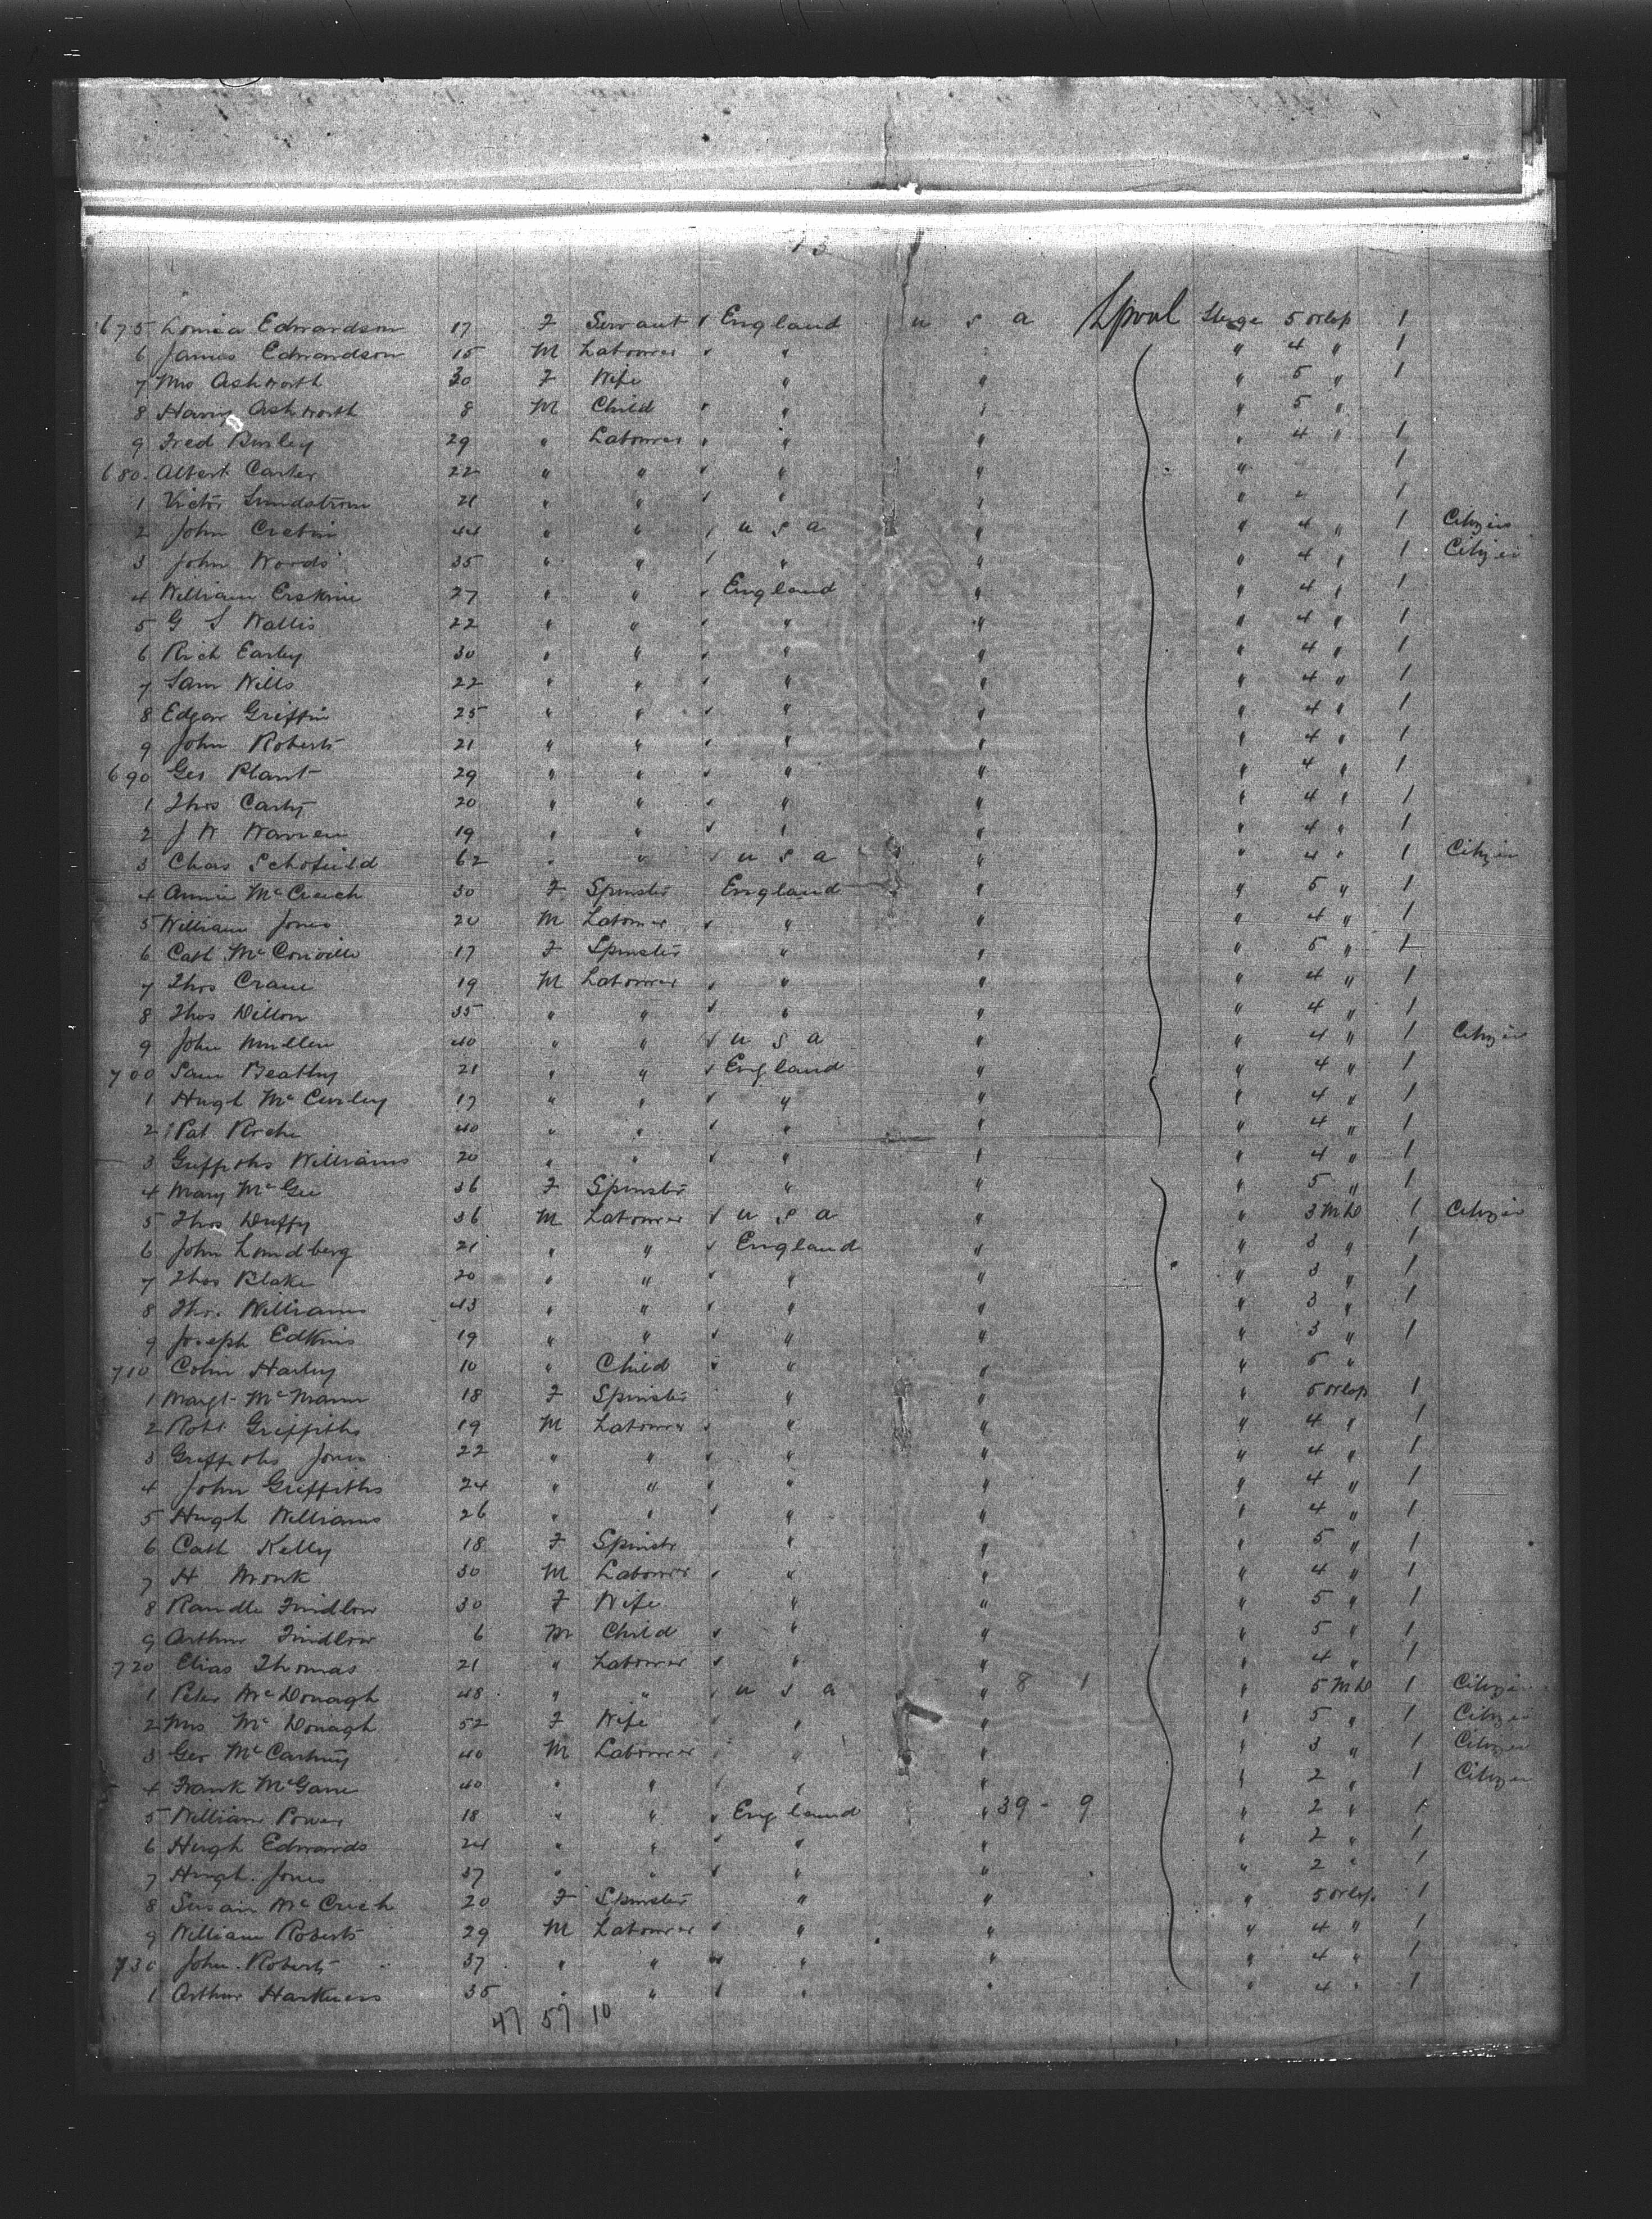 13
675 Louisa Edwardson 17 F Servant ✓ England u s a Lpool Sterge 5 orlop 1
6 James Edwardson 15 M Labourer ✓ " " 4 " 1
7 Mrs Ashworth 30 F Wife " " " 5 " 1
8 Harry Ashworth 8 M Child ✓ " " " 5 "
9 Fred Burley 29 " Labourer ✓ " " " 4 " 1
680 Albert Carter 22 " " ✓ " " " 1
1 Victor Lundstrom 21 " " ✓ " " " 1
2 John 44 " " ✓ u s a " " 4 " 1 Citizen
3 John Woods 35 " " ✓ " " " 4 " 1 Citizen
4 William Erskine 27 " " ✓ England " " 4 " 1
5 G S Wallis 22 " " ✓ " " " 4 " 1
6 Rich Earley 30 " " ✓ " " " 4 " 1
7 Sam Wells 22 " " ✓ " " " 4 " 1
8 Edgar Griffin 25 " " ✓ " " " 4 " 1
9 John Roberts 21 " " ✓ " " " 4 " 1
690 Geo Plant 29 " " ✓ " " " 4 " 1
1 Thos Carty 20 " " ✓ " " " 4 " 1
2 J W Warren 19 " " ✓ " " " 4 " 1
3 Chas Schofield 62 " " ✓ u s a " " 4 " 1 Citizen
4 Annie McCreech 30 F Spinster England " " 5 " 1
5 William Jones 20 M Labourer ✓ " " " 4 " 1
6 Cath McConville 17 F Spinster " " " 5 " 1
7 Thos Crane 19 M Labourer ✓ " " " 4 " 1
8 Thos Dillon 35 " " ✓ " " " 4 " 1
9 John Mullen 40 " " ✓ u s a " " 4 " 1 Citizen
700 Sam Beatty 21 " " ✓ England " " 4 " 1
1 Hugh McCurley 17 " " ✓ " " " 4 " 1
2 Pat Roche 40 " " ✓ " " " 4 " 1
3 Griffiths Williams 20 " " ✓ " " " 4 " 1
4 Mary McGee 36 F Spinster " " " 5 " 1
5 Thos Duffy 36 M Labourer ✓ u s a " " 3 M D 1 Citizen
6 John Lundberg 21 " " ✓ England " " 3 " 1
7 Thos Blake 20 " " ✓ " " " 3 " 1
8 Tho. Williams 43 " " ✓ " " " 3 " 1
9 Joseph Edkins 19 " " ✓ " " " 3 " 1
710 Colin Harley 10 " Child ✓ " " " 5 "
1 Margt McMann 18 F Spinster " " " 5 orlop 1
2 Robt Griffiths 19 M Labourer ✓ " " " 4 " 1
3 Griffiths Jones 22 " " ✓ " " " 4 " 1
4 John Griffiths 24 " " ✓ " " " 4 " 1
5 Hugh Williams 26 " " ✓ " " " 4 " 1
6 Cath Kelly 18 F Spinstr " " " 5 " 1
7 H Monk 30 M Labourer ✓ " " " 4 " 1
8 Randle Findlow 30 F Wife " " " 5 " 1
9 Arthur Findlow 6 M Child ✓ " " " 5 " 1
720 Elias Thomas 21 " Labourer ✓ " " " 4 " 1
1 Peter McDonagh 48 " " ✓ u s a " 8 1 " 5 M D 1 Citizen
2 Mrs McDonagh 52 F Wife ✓ " " " 5 " 1 Citizen
3 Geo McCartney 40 M Labourer ✓ " " " 3 " 1 Citizen
4 Frank McGann 40 " " ✓ " " " 2 " 1 Citizen
5 William Power 18 " " ✓ England " 39 - 9 " 2 " 1
6 Hugh Edwards 24 " " ✓ " " " 2 " 1
7 Hugh Jones 37 " " ✓ " " " 2 " 1
8 Susan McCreech 20 F Spinster " " " 5 orlop 1
9 William Roberts 29 M Labourer ✓ " " " 4 " 1
730 John Roberts 37 " " ✓ " " " 4 " 1
1 Arthur Harkness 35 " " ✓ " " " 4 " 1
47 57 10